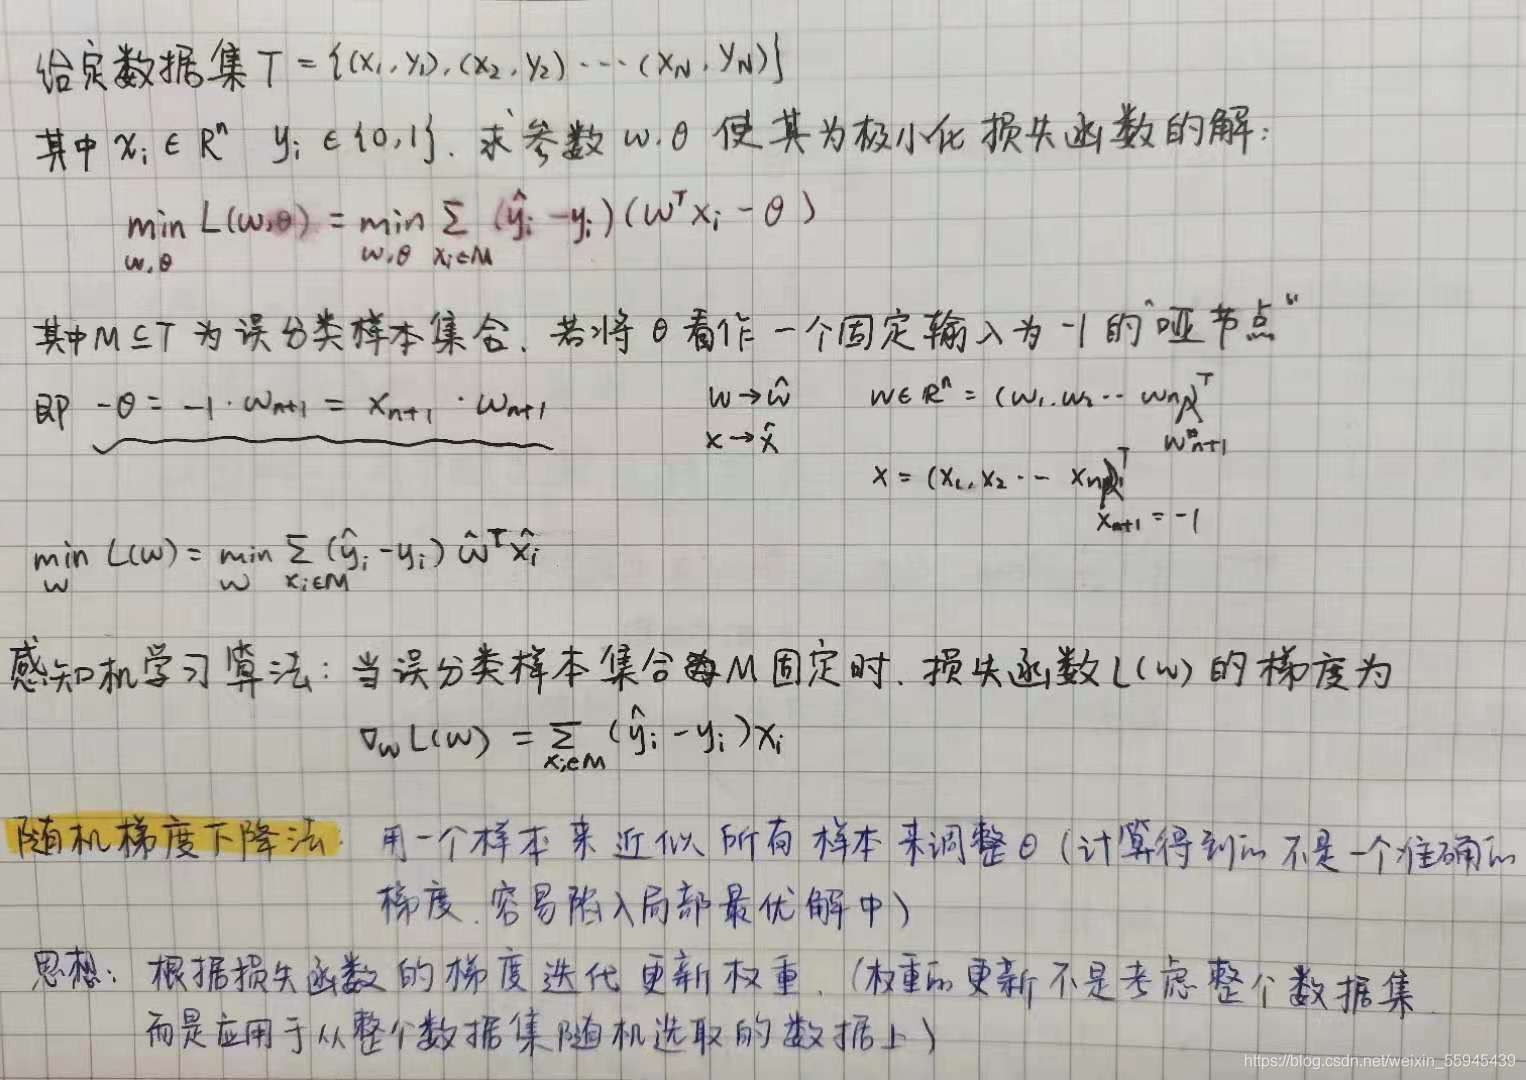 给定数据集 T = {(x₁, y₁), (x₂, y₂) ··· (x_N, y_N)}
其中 x_i ∈ Rⁿ y_i ∈ {0,1}. 求参数 w,θ 使其为极小化损失函数的解:
min_{w,θ} L(w,θ) = min_{w,θ} Σ_{x_i∈M} (ŷ_i - y_i)(wᵀx_i - θ)
其中 M ⊆ T 为误分类样本集合. 若将 θ 看作一个固定输入为 -1 的“哑节点”
即 -θ = -1 · w_{n+1} = x_{n+1} · w_{n+1}
w → ŵ w ∈ Rⁿ = (w₁, w₂ ·· w_n)ᵀ
w_{n+1}
x → x̂
x = (x₁, x₂ ·· x_n)ᵀ
x_{n+1} = -1
min_w L(w) = min_w Σ_{x_i∈M} (ŷ_i - y_i) ŵᵀx̂_i
感知机学习算法: 当误分类样本集合 M 固定时, 损失函数 L(w) 的梯度为
∇_w L(w) = Σ_{x_i∈M} (ŷ_i - y_i)x_i
随机梯度下降法: 用一个样本来近似所有样本来调整 θ (计算得到的不是一个准确的
梯度, 容易陷入局部最优解中)
思想: 根据损失函数的梯度迭代更新权重. (权重的更新不是考虑整个数据集
而是应用于从整个数据集随机选取的数据上)
https://blog.csdn.net/weixin_55945439